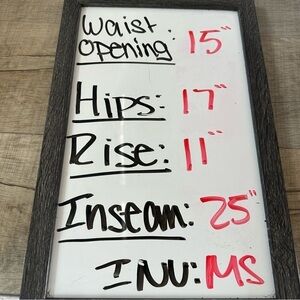 Waist
Opening: 15"
Hips: 17"
Rise: 11"
Inseam: 25"
INV: MS